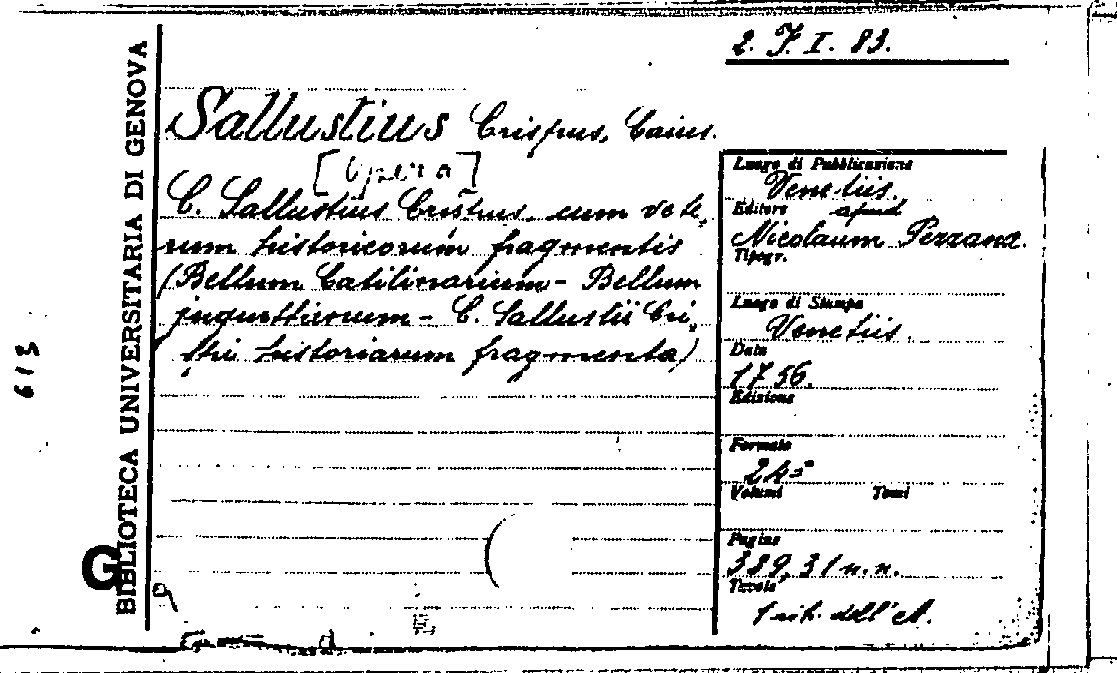 2. 7. I. 83.
Sallustius Crispus, Caius.
[Opera]
C. Sallustius Crispus, cum vete,
rum historicorum fragmentis
(Bellum Catilinarium - Bellum
jugurthinum - C. Sallustii Cri,
spi historiarum fragmenta)
Luogo di Pubblicazione
Venetiis.
Editore apud
Nicolaum Pezzana.
Tipogr.
Luogo di Stampa
Venetiis.
Data
1756.
Edizione
Formato
24°
Volumi Tomi
Pagine
389, 31 n.n.
Tavole
1 rit. dell'A.
BIBLIOTECA UNIVERSITARIA DI GENOVA
G
613